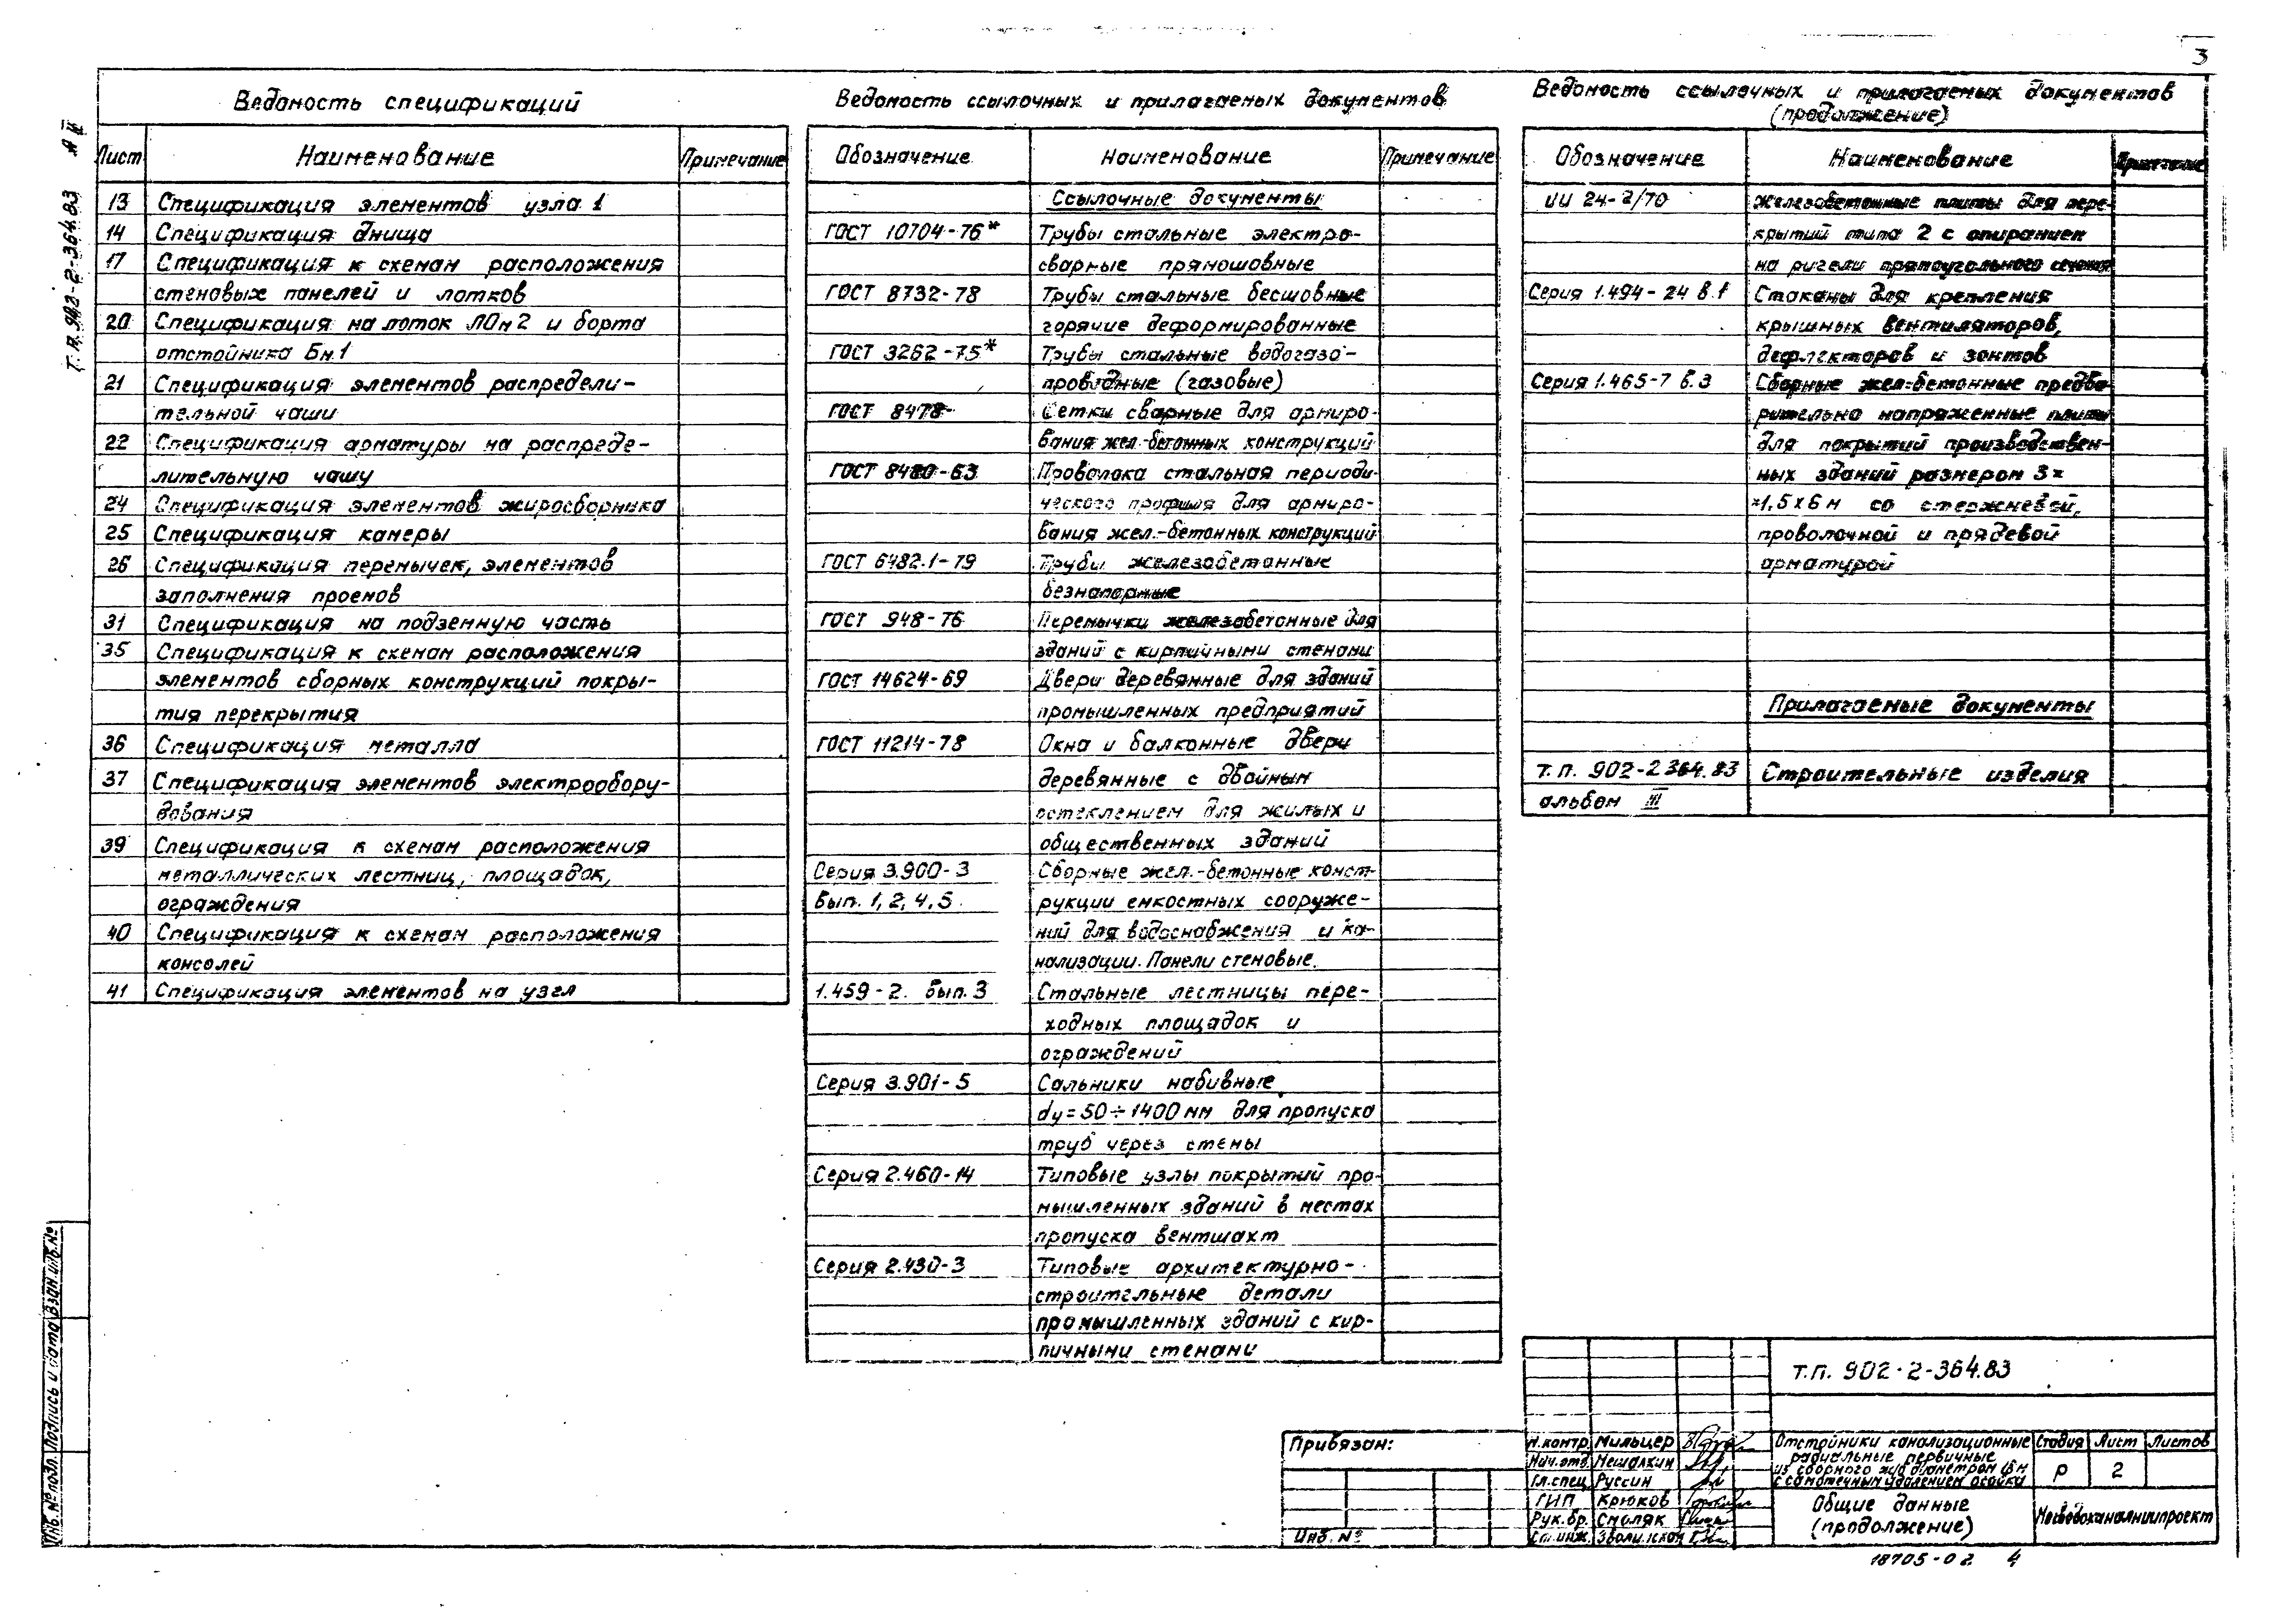 3
Т.П. 902-2-364.83 А II
Ведомость спецификаций
Лист Наименование Примечание
13 Спецификация элементов узла 1
14 Спецификация днища
17 Спецификация к схемам расположения
стеновых панелей и лотков
20 Спецификация на лоток ЛОм2 и борта
отстойника Бм.1
21 Спецификация элементов распредели-
тельной чаши
22 Спецификация арматуры на распреде-
лительную чашу
24 Спецификация элементов жиросборника
25 Спецификация камеры
26 Спецификация перемычек, элементов
заполнения проемов
31 Спецификация на подземную часть
35 Спецификация к схемам расположения
элементов сборных конструкций покры-
тия перекрытия
36 Спецификация металла
37 Спецификация элементов электрообору-
дования
39 Спецификация к схемам расположения
металлических лестниц, площадок,
ограждения
40 Спецификация к схемам расположения
консолей
41 Спецификация элементов на узел
Ведомость ссылочных и прилагаемых документов
Обозначение Наименование Примечание
Ссылочные документы
ГОСТ 10704-76* Трубы стальные электро-
сварные прямошовные
ГОСТ 8732-78 Трубы стальные бесшовные
горячие деформированные
ГОСТ 3262-75* Трубы стальные водогазо-
проводные (газовые)
ГОСТ 8478- Сетки сварные для армиро-
вания жел.-бетонных конструкций
ГОСТ 8480-63 Проволока стальная периоди-
ческого профиля для армиро-
вания жел.-бетонных конструкций
ГОСТ 6482.1-79 Трубы железобетонные
безнапорные
ГОСТ 948-76 Перемычки железобетонные для
зданий с кирпичными стенами
ГОСТ 14624-69 Двери деревянные для зданий
промышленных предприятий
ГОСТ 11214-78 Окна и балконные двери
деревянные с двойным
остеклением для жилых и
общественных зданий
Серия 3.900-3 Сборные жел.-бетонные конст-
Вып. 1, 2, 4, 5. рукции емкостных сооруже-
ний для водоснабжения и ка-
нализации. Панели стеновые.
1.459-2. Вып. 3 Стальные лестницы пере-
ходных площадок и
ограждений
Серия 3.901-5 Сальники набивные
dу=50÷1400 мм для пропуска
труб через стены
Серия 2.460-14 Типовые узлы покрытий про-
мышленных зданий в местах
пропуска вентшахт
Серия 2.430-3 Типовые архитектурно-
строительные детали
промышленных зданий с кир-
пичными стенами
Ведомость ссылочных и прилагаемых документов
(продолжение)
Обозначение Наименование Примечание
ИИ 24-2/70 железобетонные плиты для пере-
крытий типа 2 с опиранием
на ригели прямоугольного сечения
Серия 1.494-24 в.1 Стаканы для крепления
крышных вентиляторов,
дефлекторов и зонтов
Серия 1.465-7 в.3 Сборные жел-бетонные предва-
рительно напряженные плиты
для покрытий производствен-
ных зданий размером 3х
×1,5х6м со стержневой,
проволочной и прядевой
арматурой
Прилагаемые документы
т.п. 902-2 364.83 Строительные изделия
альбом III
т.п. 902-2-364.83
Привязан:
Инв. №
Н.контр. Мильцер
Нач.отд. Мешалкин
Гл.спец. Руссин
ГИП Крюков
Рук.бр. Смоляк
Ст.инж.
Отстойники канализационные
радиальные первичные
из сборного ж/б диаметром 18 м
с самотечным удалением осадка
Стадия Лист Листов
Р 2
Общие данные
(продолжение)
Мосводоканалниипроект
18705-02 4
Инв. № подл. Подпись и дата Взам. инв. №